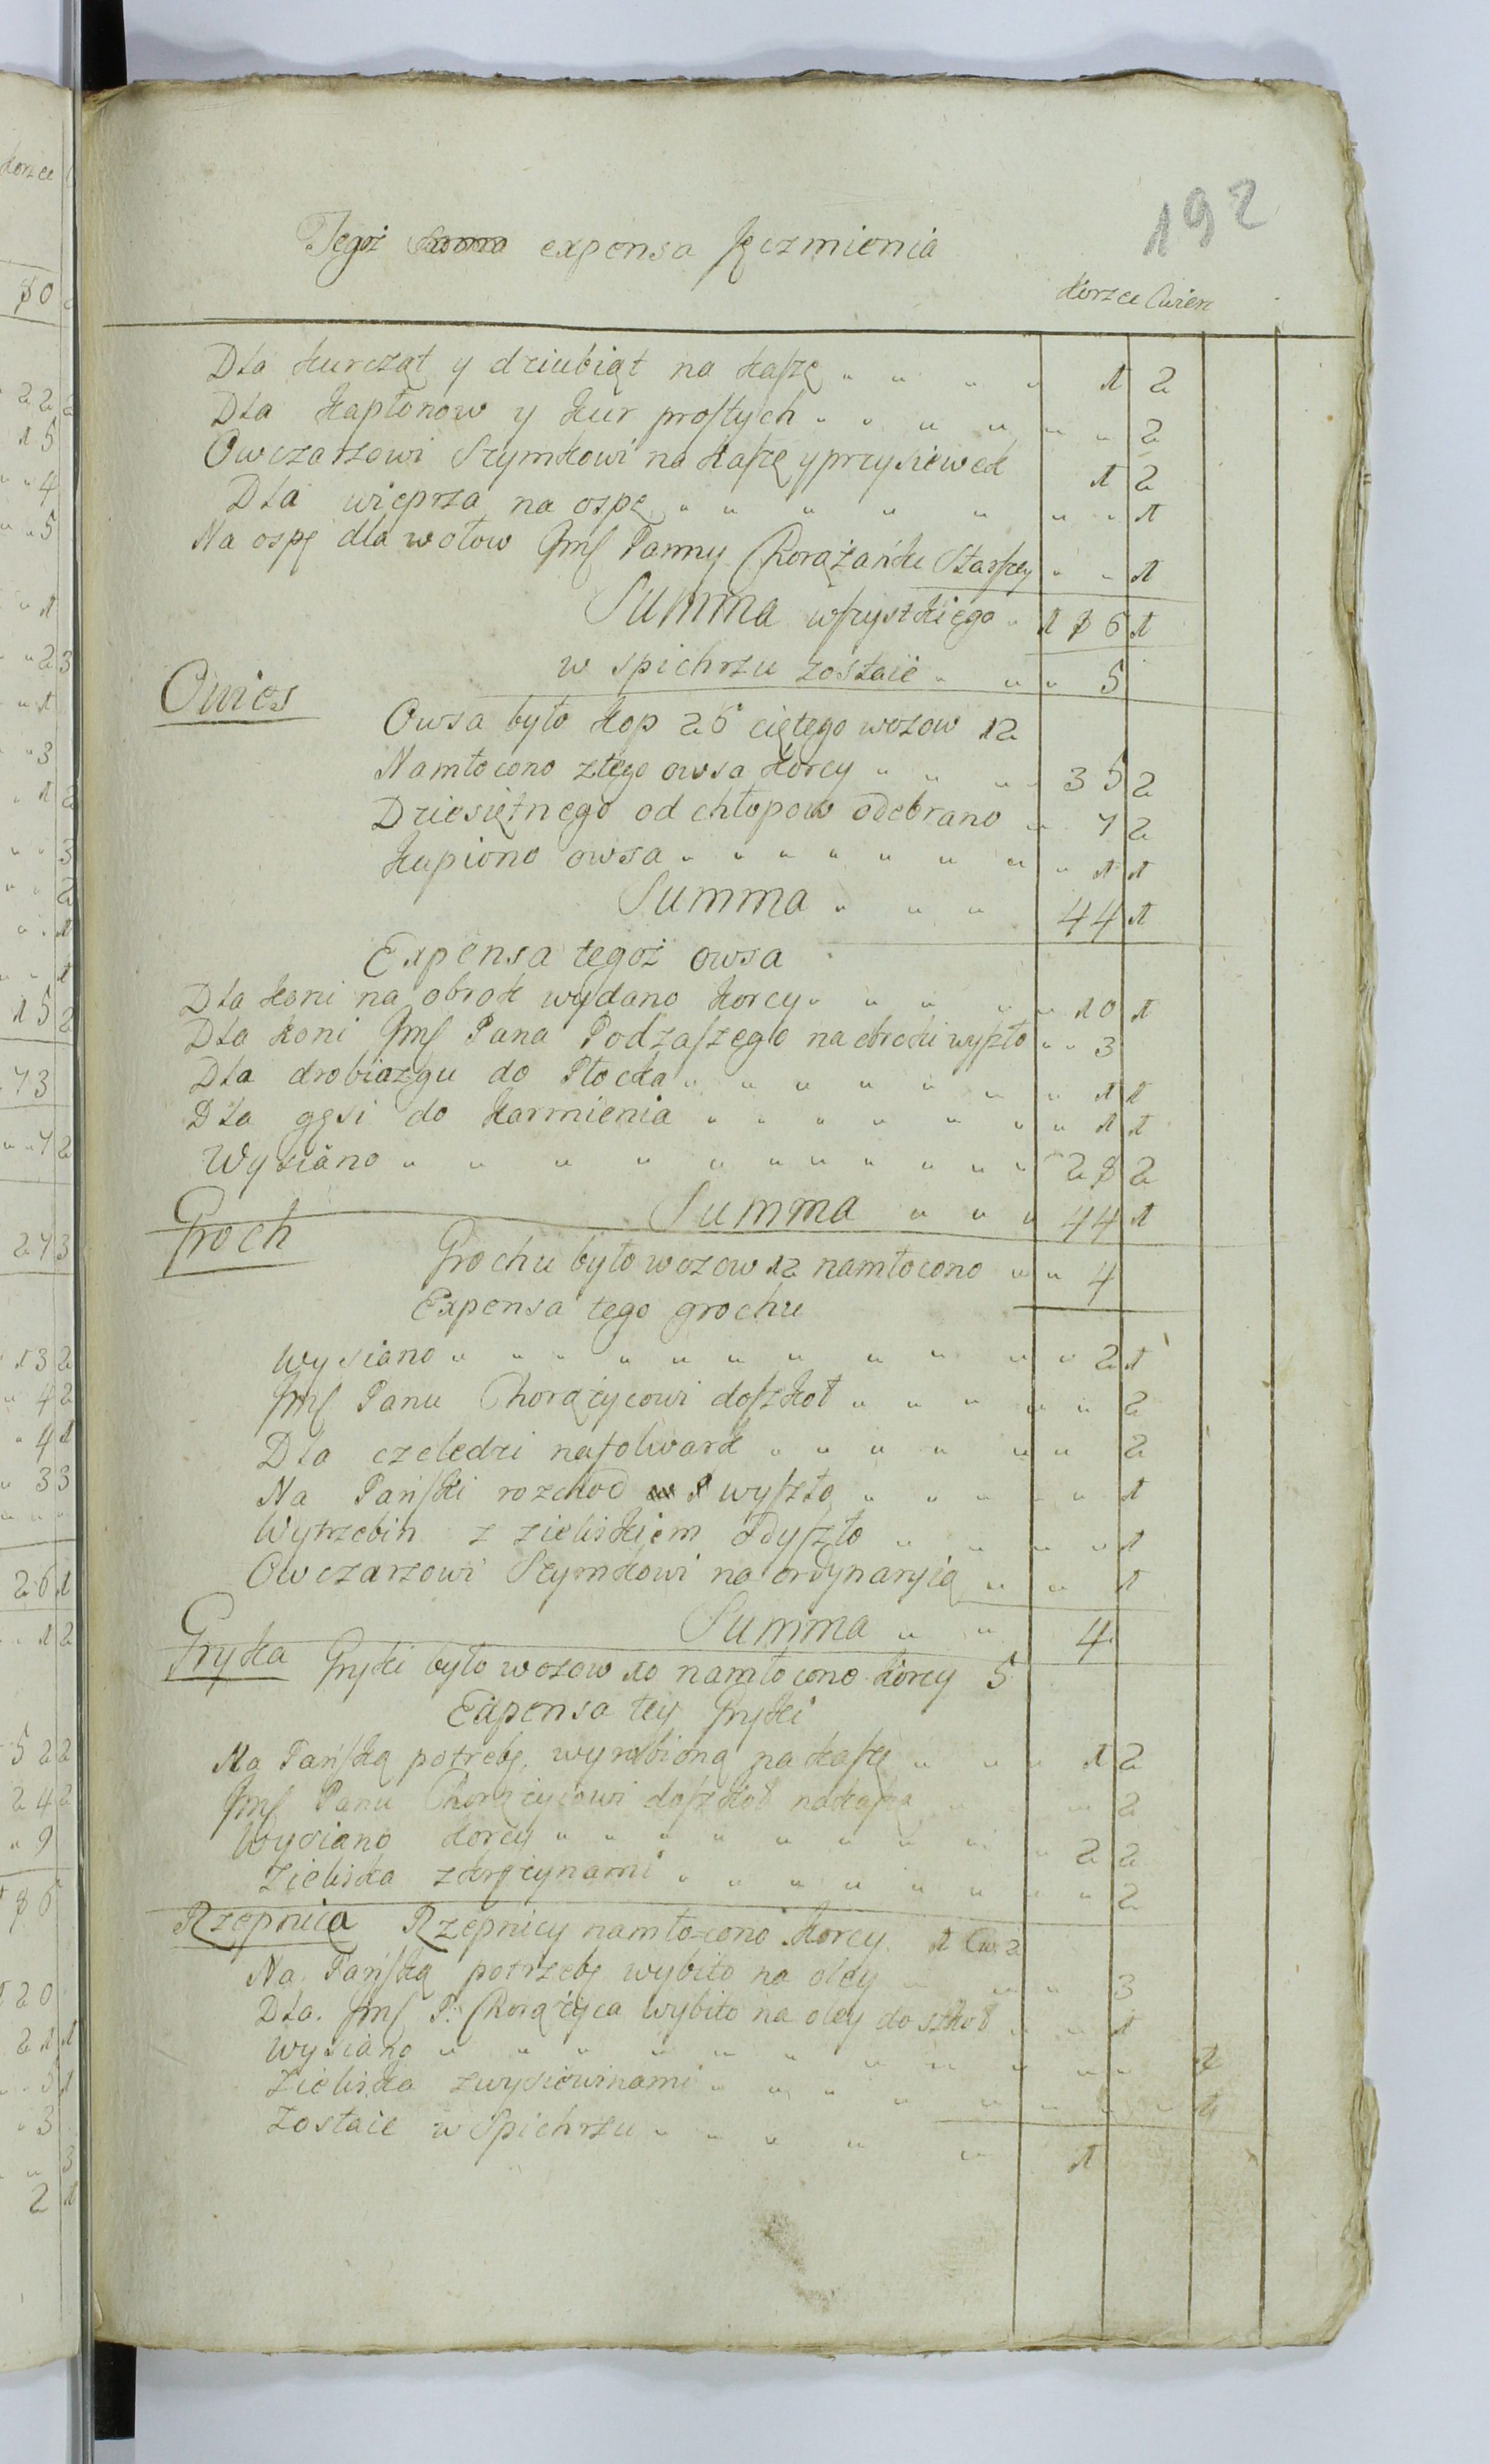 192
Tegoż expensa Jęczmienia
korzce Cwierc
Dla kurcząt y dziubiąt na kaszę " " " " 1 2
Dla kapłonow y kur prostych " " " " " " 2
Owczarzowi Szymkowi na kaszę y przysiewek 1 2
Dla wieprza na ospę " " " " " " " 1
Na ospę dla wołow Jmſ Panny Chorążanki Starszey " " 1
Summa wszystkiego " 186 1
w spichrzu zostaie " " " 5
Owies
Owsa było kop 26 ciętego wozow 12
Namłocono z tego owsa korcy " " " " 35 2
Dziesiętnego od chłopow odebrano " 7 2
kupiono owsa " " " " " " " " " 1 1
Summa " " " 44 1
Expensa tegoż owsa
Dla koni na obrok wydano korcy " " " " " " 10 1
Dla koni Jmſ Pana Podzaszego na obroki wyszło " " 3
Dla drobiazgu do Płocka " " " " " " " 1 1
Dla gęsi do karmienia " " " " " " " 1 1
Wysiano " " " " " " " " " " " 28 2
Summa " " " 44 1
Groch
Grochu było wozow 12 namłocono " " 4
Expensa tego grochu
Wysiano " " " " " " " " " " " 2 1
Jmſ Panu Chorążycowi do szkoł " " " " " 2
Dla czeledzi na folwark " " " " " " 2
Na Pański rozchod wyszło " " " " " 1
Wytrzebin z zieliskiem odyszło " " " " 1
Owczarzowi Szymkowi na ordynaryią " " 1
Summa " " 4
Gryka Gryki było wozow 10 namłocono korcy 5
Expensa tey Gryki
Na Pańską potrzebę, wyrobioną na kaszę " " " 1 2
Jmſ Panu Chorążycowi do szkoł na kaszę " " " 2
Wysiano korcy " " " " " " " " " 2 2
Zieliska " " " " " " " " " 2
Rzepnica Rzepnicy namłocono korcy 1 Cw: 2
Na Pańską potrzebę wybito na oley " " " 3
Dla Jmſ P: Chorążyca wybito na oley do szkoł " " 1
Wysiano " " " " " " " " " " "
Zieliska z wysiewinami " " " " " " " "
Zostaie w Spichrzu " " " " " 1